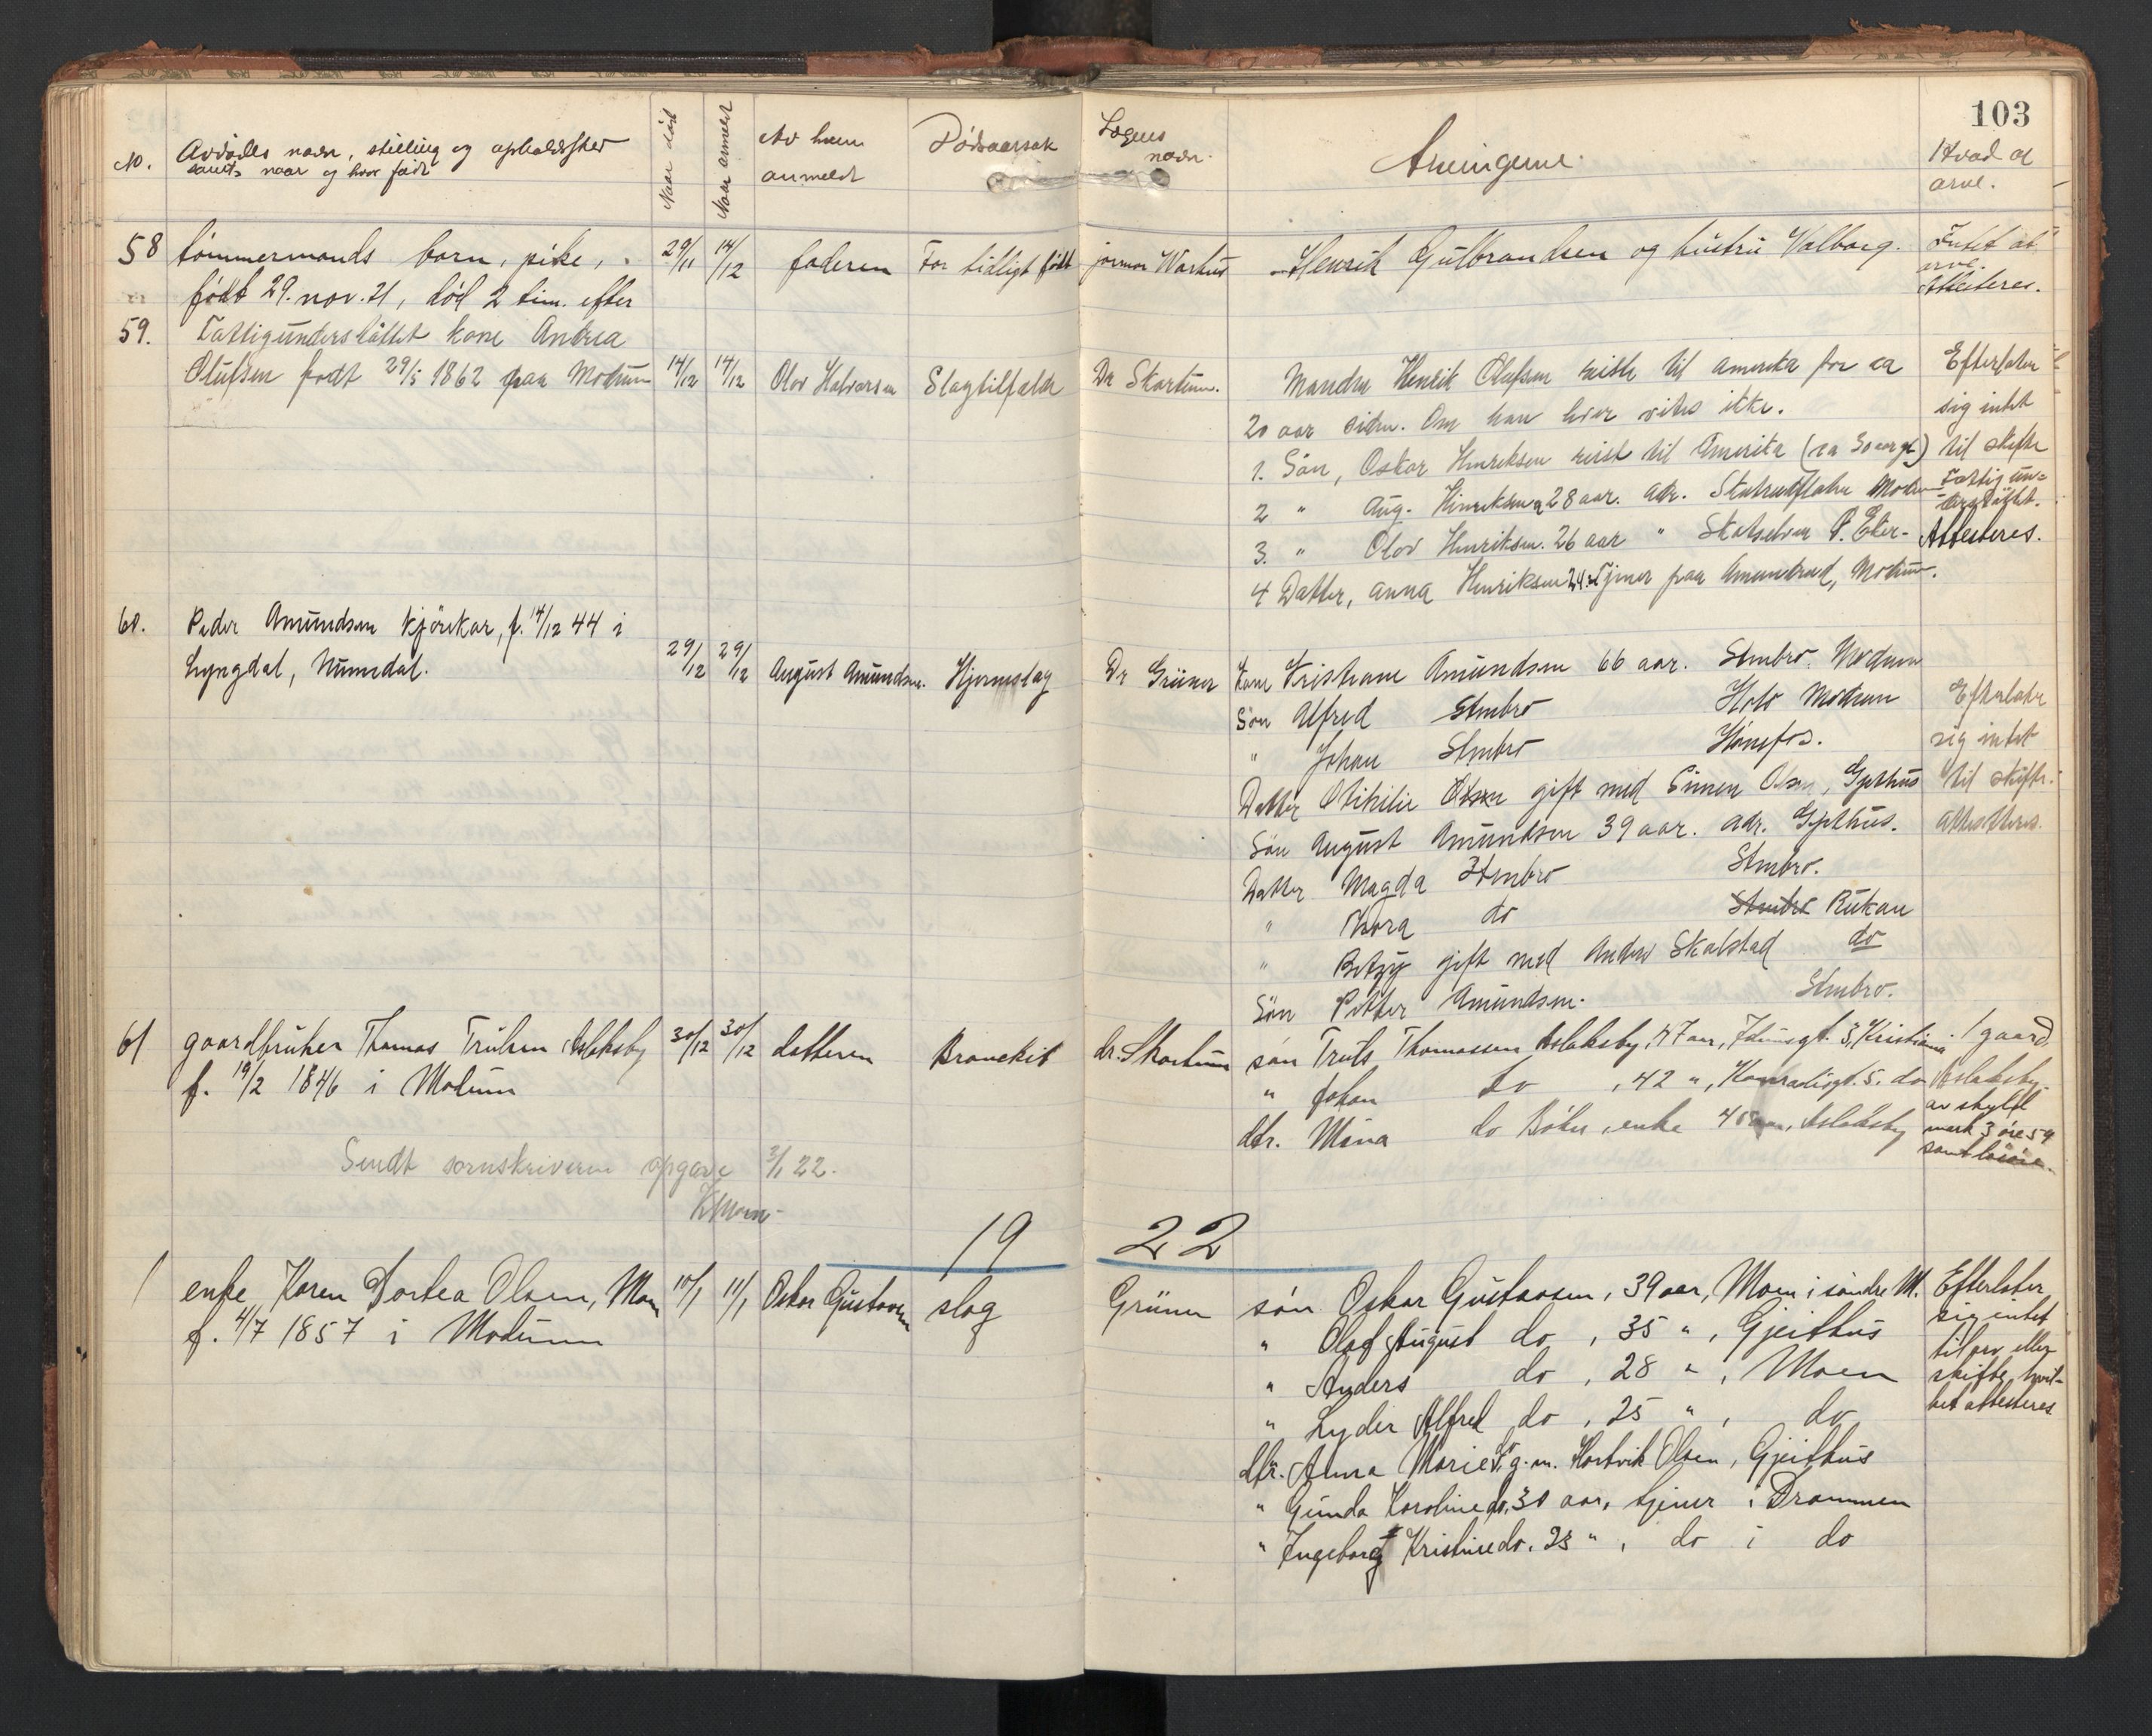 103
No. Avdødes navn, stilling og opholdssted samt naar og hvor født
Naar død
Naar anmeldt
Av hvem anmeldt
Dødsaarsak
Lægens navn.
Arvingerne.
Hvad at arve.
58 tømmermands barn, pike, 29/11 14/12 faderen For tidligt født jormor Warhus Henrik Gulbrandsen og hustru Valborg. Intet at arve. Attesteres.
født 29. nov. 21, død 2 tim. efter
59. Fattigunderstøttet kone Andrea
Olufsen født 29/5 1862 paa Modum 14/12 14/12 Olov Halvorsen Slagtilfælde Dr Skartum.
Manden Henrik Olufsen reiste til Amerika for ca
20 aar siden. Om han lever vites ikke.
1. Søn, Oskar Henriksen reist til Amerika (ca 30 aar gl)
2 " Aug. Henriksen 28 aar. adr. Modum
3. " Olov Henriksen. 26 aar " Skotselven Ø. Eker.
4 Datter, Anna Henriksen 24 aar Tjener paa Amundrud, Modum.
Efterlater
sig intet
til skifte
Fattigun-
derstøttet.
Attesteres.
60. Peder Amundsen Kjørekar, f. 14/12 44 i
Lyngdal, Numedal. 29/12 29/12 August Amundsen. Hjerneslag Dr Grüner
Kone Kristiane Amundsen 66 aar. Stmbro. Modum
Søn Alfred Stmbro Holo Modum
" Johan Stmbro Hönefos.
Datter Otihilie Olsen gift med Simen Olsen, Gjethus
Søn August Amundsen 39 aar. adr. Gjethus.
Datter Magda Stmbro Stmbro.
" Thora do Stmbro Rukan
" Betzy gift med Anders Skalstad do
Søn Petter Amundsen. Stmbro.
Efterlater
sig intet
til skifte.
Attesteres.
61 gaardbruker Thomas Trulsen Aslaksby 30/12 30/12 datteren Bronckit dr. Skartum
f. 19/2 1846 i Modum
søn Truls Thomassen Aslaksby, 47 aar, 3, Kristiania
" Johan do , 42 ", Konradisgt. 5. do
dtr. Mina do Bøhn, enke 45 aar, Aslaksby
1 gaard
Aslaksby.
av skyld
mark 3 øre 59
samt løsøre.
Sendt sorenskriveren opgave 3/1 22.
KMoen
19 22
1 enke Karen Dortea Olsen, Moen 10/1 11/1 Oskar Gustavsen slag Grüner
f. 4/7 1857 i Modum
søn Oskar Gustavsen, 39 aar, Moen i søndre M.
" Olaf August do , 35 ", Gjeithus
" Anders do , 28 ", Moen
" Lyder Alfred do , 25 ", do
dtr. Anna Marie do, g.m. Hartvik Olsen, Gjeithus
" Gunda Karoline do, 30 aar, tjener i Drammen
" Ingeborg Kristine do. 23 ", do i do
Efterlater
sig intet
til arv eller
skifte, hvil-
ket attesteres